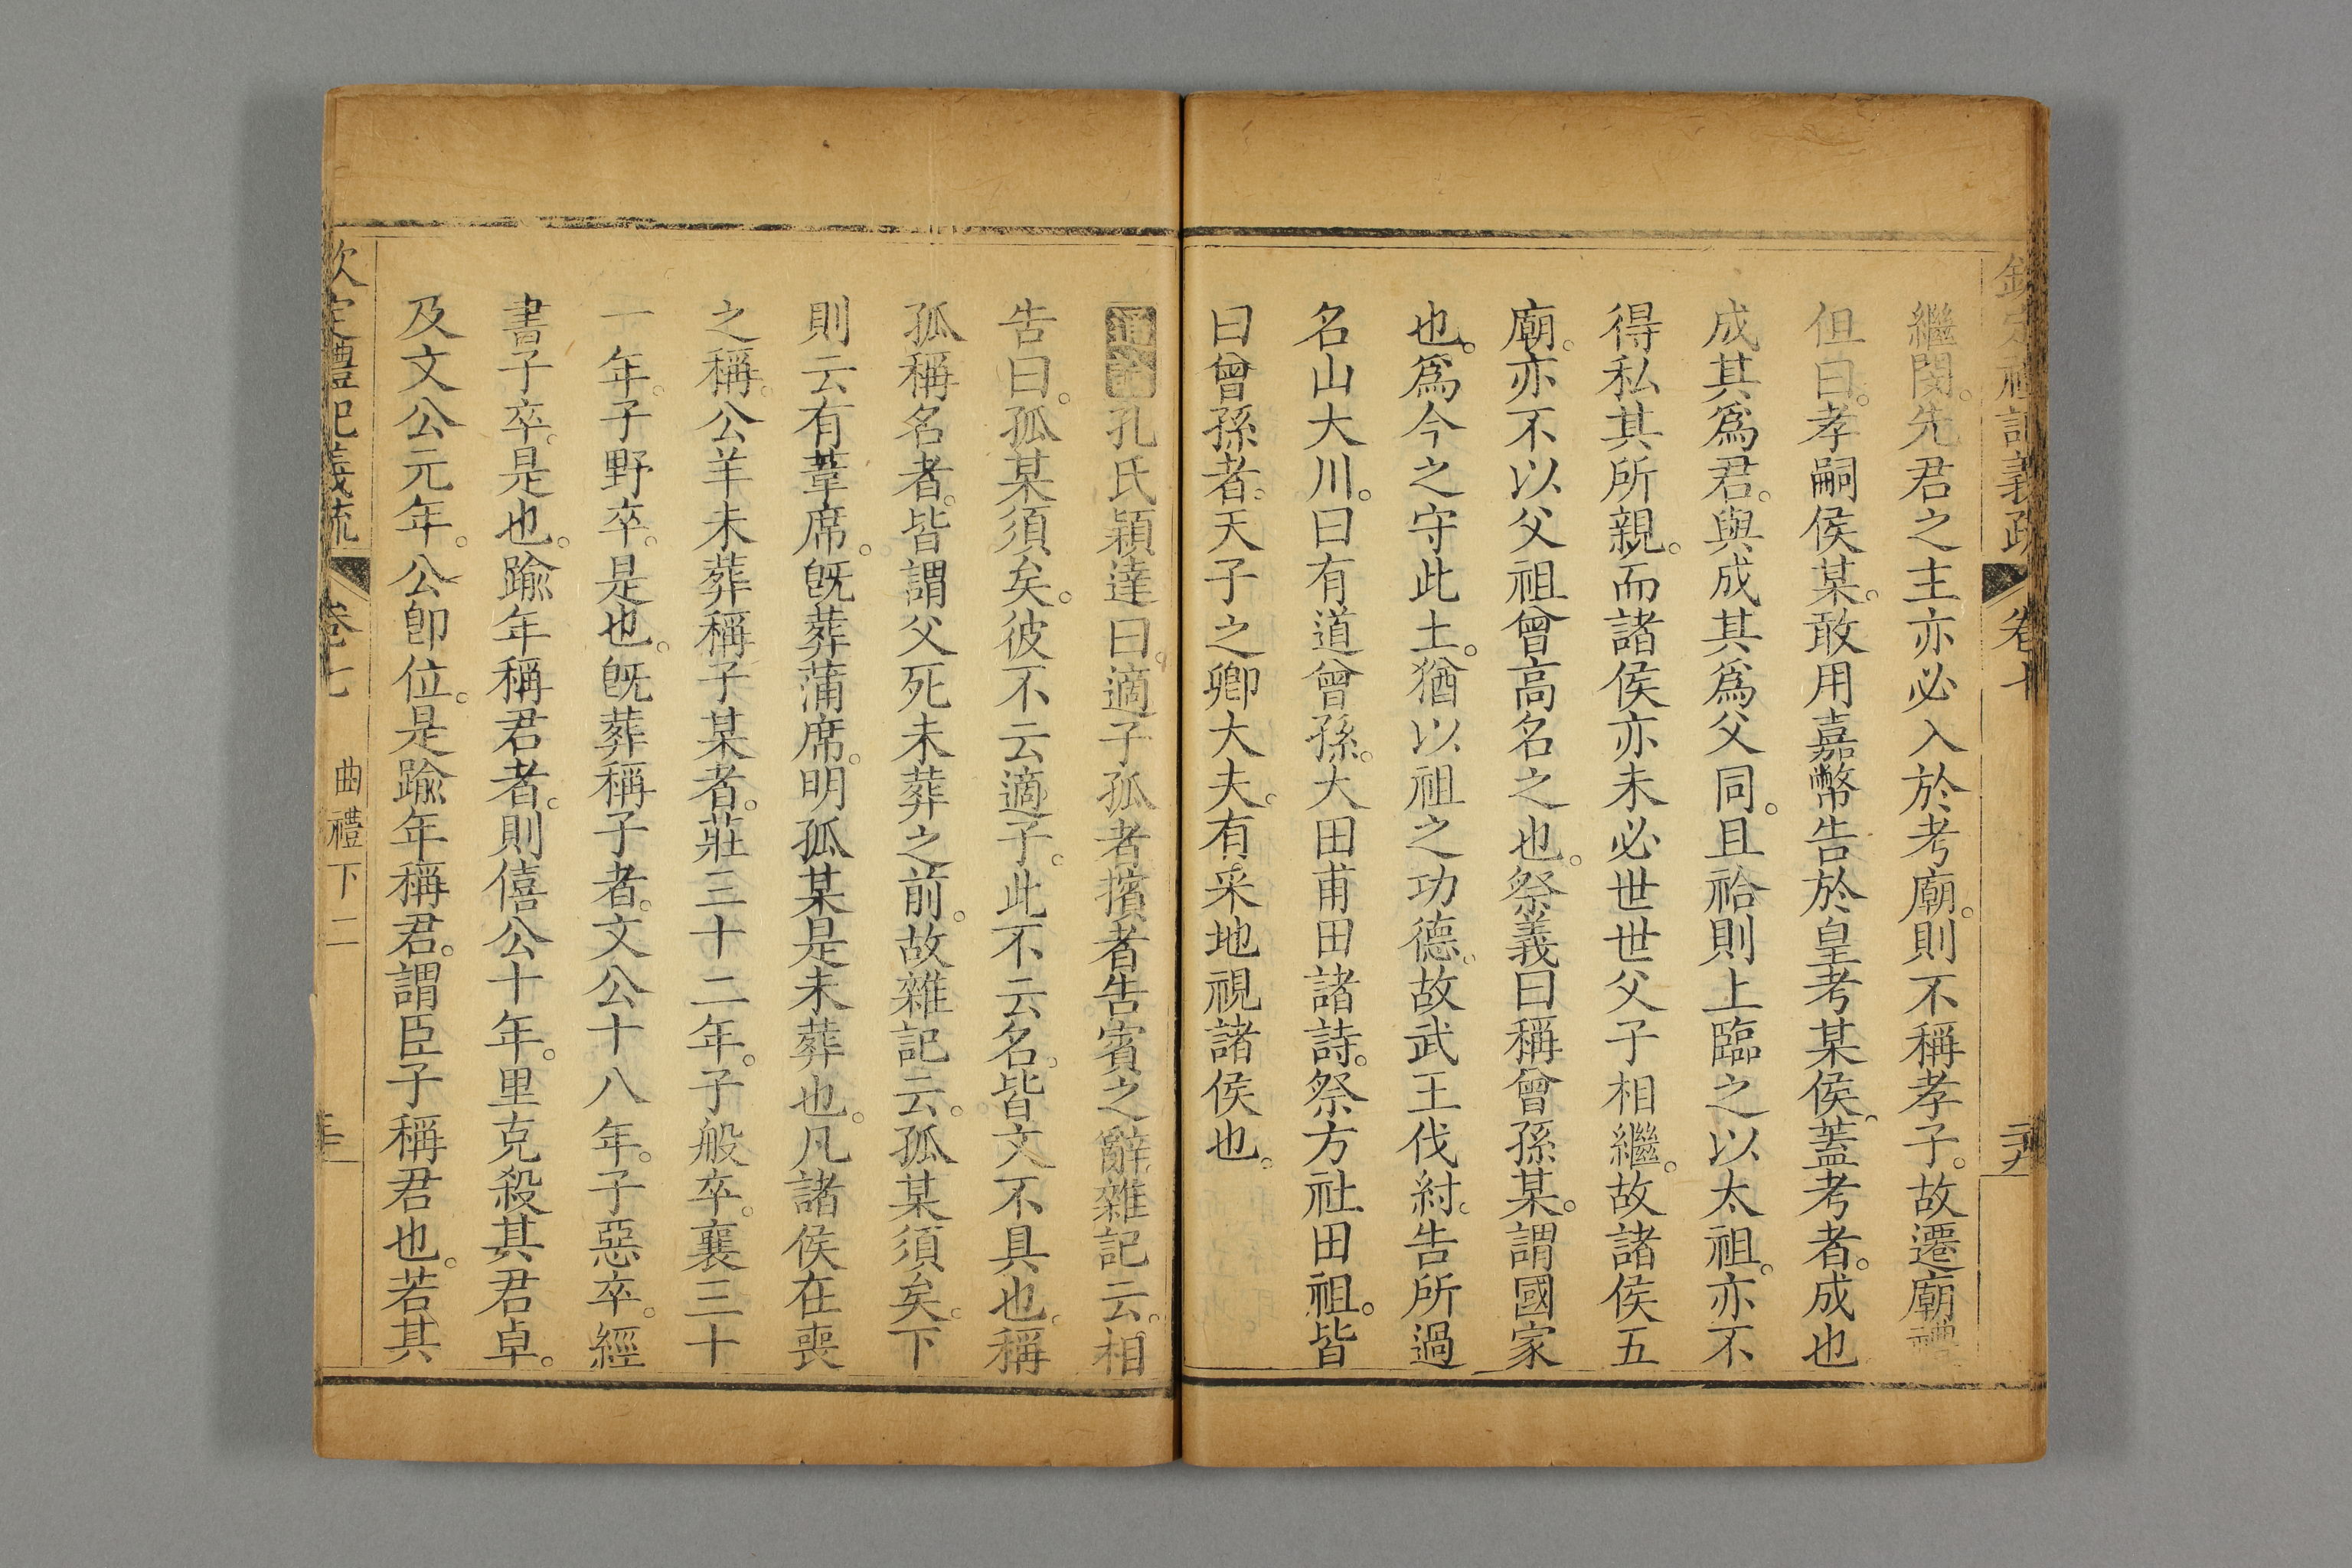 欽定禮記義疏 卷七
繼閔。先君之主亦必入於考廟。則不稱孝子。故遷廟禮
但曰。孝嗣侯某。敢用嘉幣告於皇考某侯。蓋考者。成也
成其爲君。與成其爲父同。且祫則上臨之以太祖。亦不
得私其所親。而諸侯亦未必世世父子相繼。故諸侯五
廟。亦不以父祖曾高名之也。祭義曰稱曾孫某。謂國家
也。爲今之守此土。猶以祖之功德。故武王伐紂。告所過
名山大川。曰有道曾孫。大田甫田諸詩。祭方社田祖。皆
曰曾孫者。天子之卿大夫。有采地視諸侯也。
通論孔氏穎達曰。適子孤者擯者告賓之辭。雜記云。相
告曰。孤某須矣。彼不云適子。此不云名。皆文不具也。稱
孤稱名者。皆謂父死未葬之前。故雜記云。孤某須矣。下
則云有葦席。旣葬蒲席。明孤某是未葬也。凡諸侯在喪
之稱。公羊未葬稱子某者。莊三十二年。子般卒。襄三十
一年。子野卒。是也。旣葬稱子者。文公十八年。子惡卒。經
書子卒。是也。踰年稱君者。則僖公十年。里克殺其君卓。
及文公元年。公卽位。是踰年稱君。謂臣子稱君也。若其
欽定禮記義疏 卷七 曲禮下二